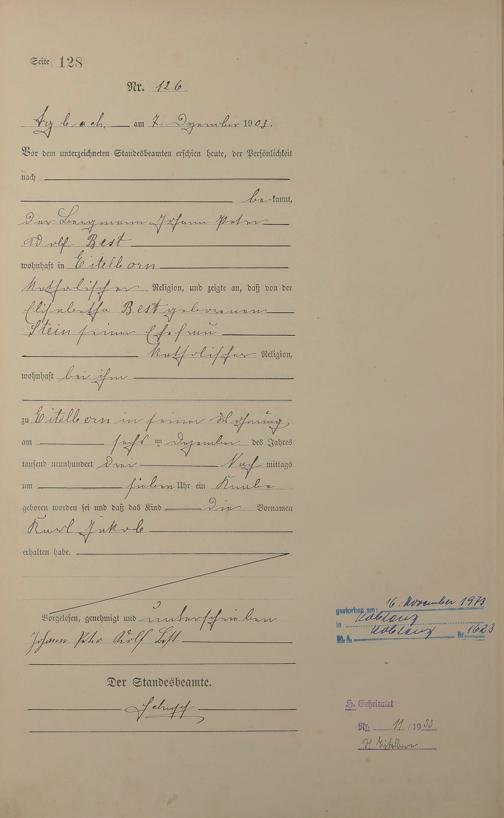 Seite 128
Nr. 126
Arzbach am 7. Dezember 1903.
Vor dem unterzeichneten Standesbeamten erschien heute, der Persönlichkeit
nach
bekannt,
der Bergmann Johann Peter
Adolf Best
wohnhaft in Eitelborn
katholischer Religion, und zeigte an, daß von der
Elisabetha Best geborenen
Stein seiner Ehefrau
katholischer Religion,
wohnhaft bei ihm
zu Eitelborn in seiner Wohnung
am sechs = Dezember des Jahres
tausend neunhundert drei Nach mittags
um sieben Uhr ein Knabe
geboren worden sei und daß das Kind die Vornamen
Karl Jakob
erhalten habe.
Vorgelesen, genehmigt und unterschrieben
Johann Peter Adolf Best
Der Standesbeamte.
gestorben am: 16. November 1973
in Koblenz
St. A. Koblenz Nr. 1623
H. Geheiratet
Nr. 11 / 1933